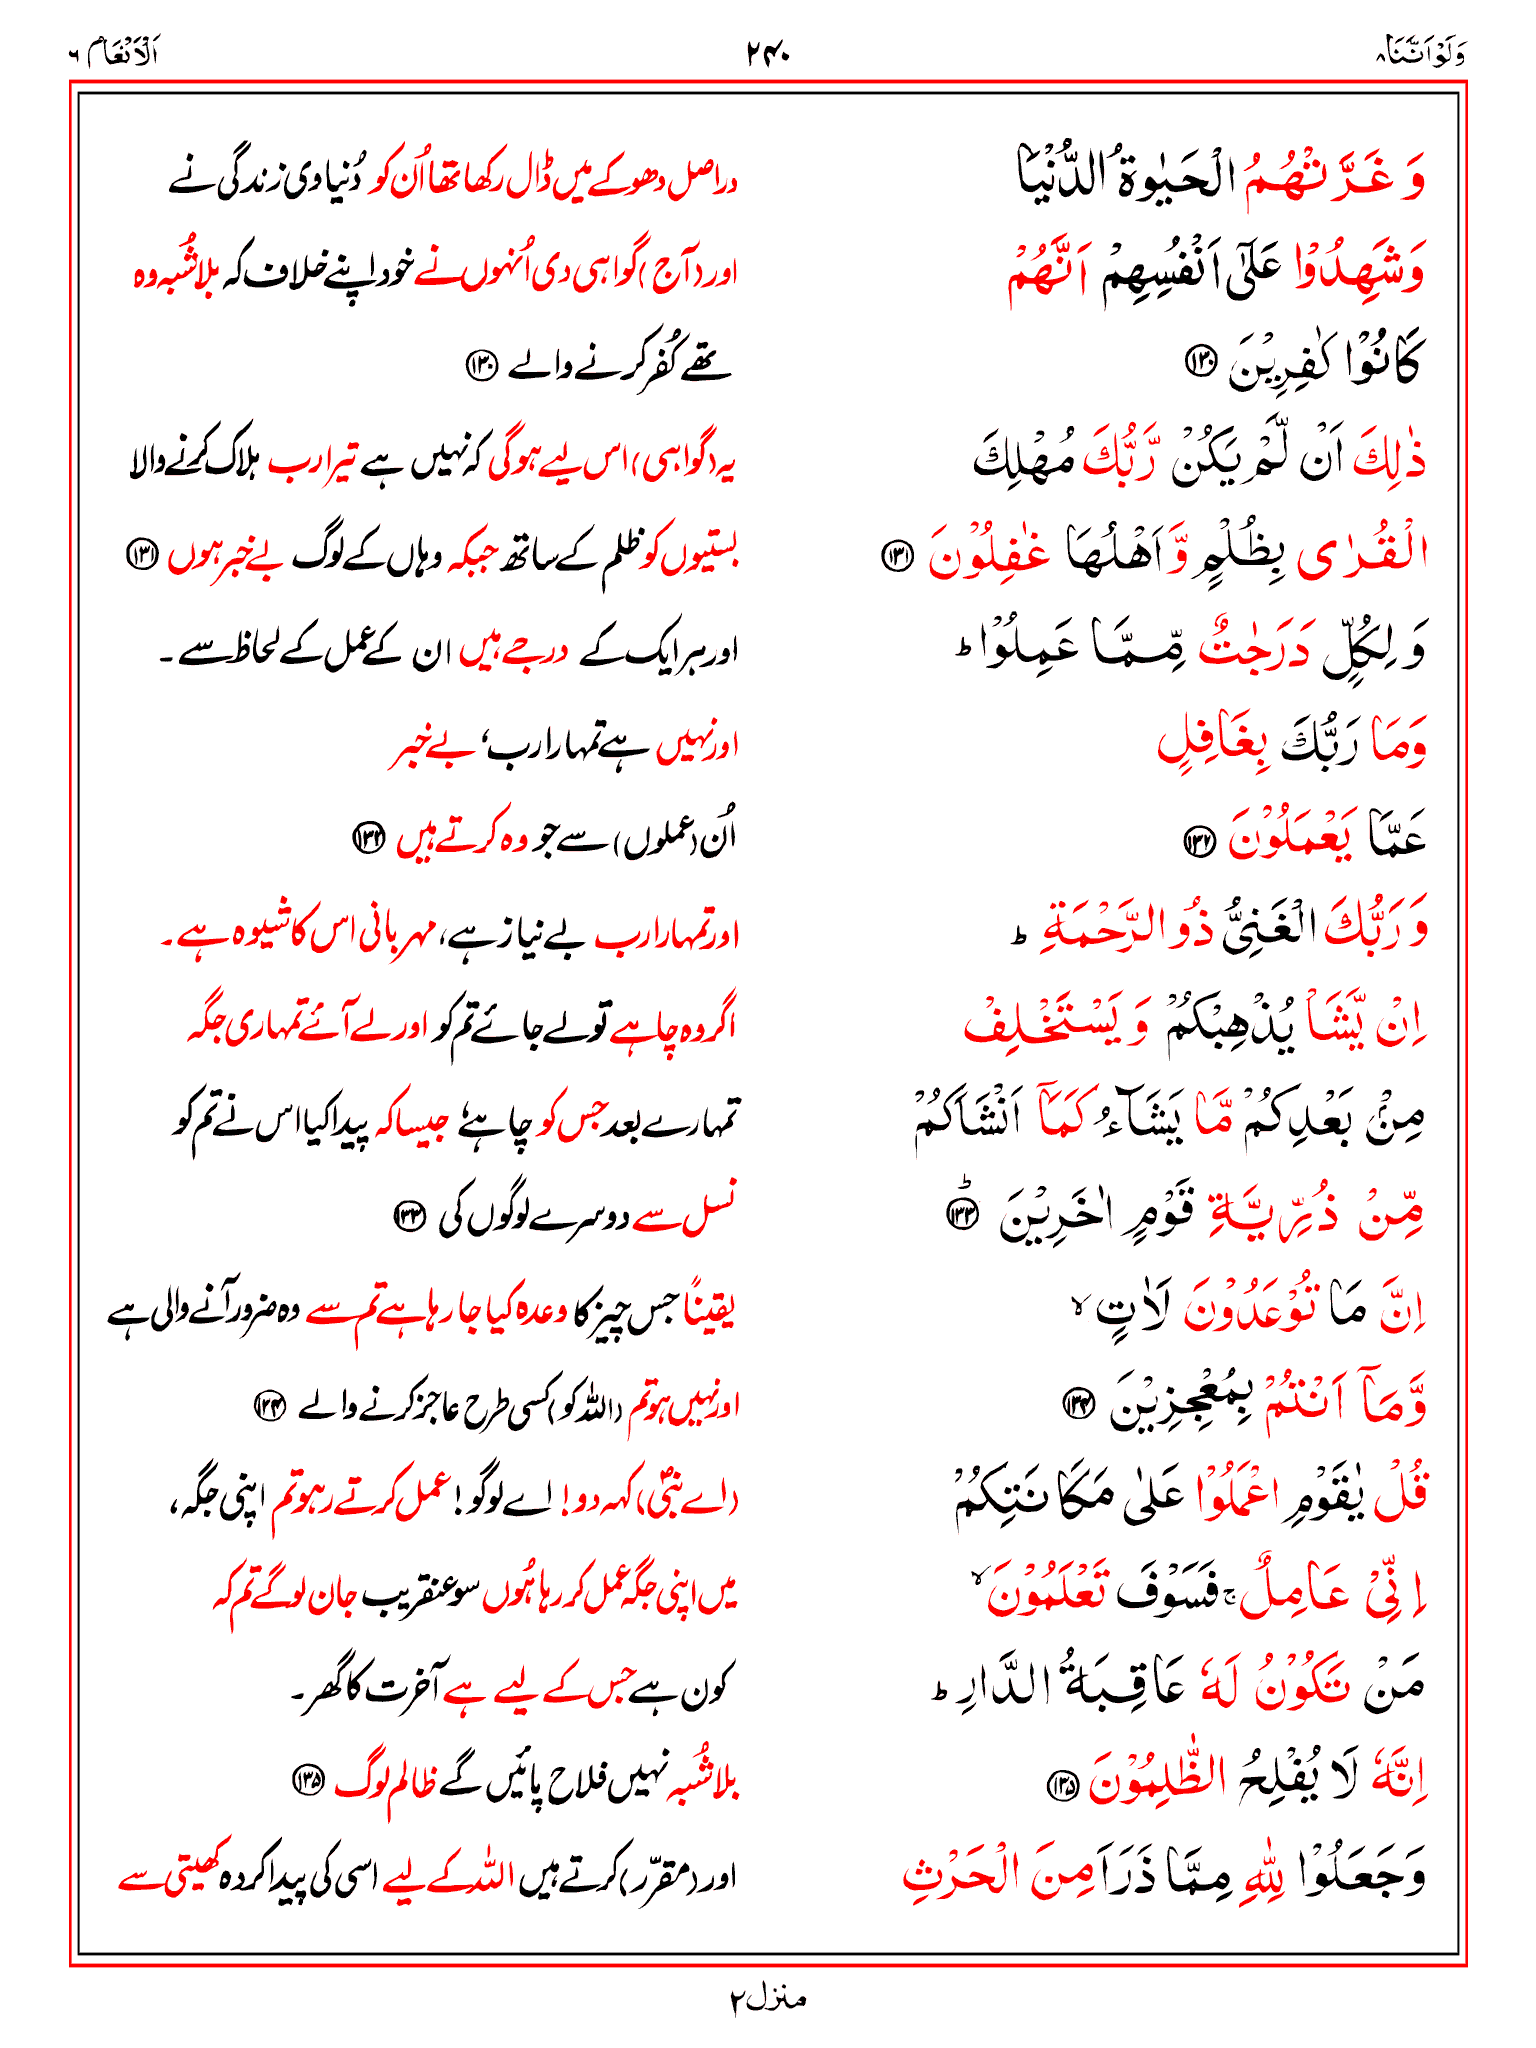 وَلَوْاَنَّنَا ۸
۲۴۰
اَلْاَنْعَام ۶
وَ غَرَّتْهُمُ الْحَيٰوةُ الدُّنْيَا
دراصل دھوکے میں ڈال رکھا تھا اُن کو دُنیاوی زندگی نے
وَشَهِدُوْا عَلٰٓى اَنْفُسِهِمْ اَنَّهُمْ
اور (آج) گواہی دی اُنہوں نے خود اپنے خلاف کہ بلاشُبہ وہ
كَانُوْا كٰفِرِيْنَ ۝۱۳۰
تھے کُفر کرنے والے ۝۱۳۰
ذٰلِكَ اَنْ لَّمْ يَكُنْ رَّبُّكَ مُهْلِكَ
یہ (گواہی) اس لیے ہوگی کہ نہیں ہے تیرا رب ہلاک کرنے والا
الْقُرٰى بِظُلْمٍ وَّ اَهْلُهَا غٰفِلُوْنَ ۝۱۳۱
بستیوں کو ظلم کے ساتھ جبکہ وہاں کے لوگ بے خبر ہوں ۝۱۳۱
وَ لِكُلٍّ دَرَجٰتٌ مِّمَّا عَمِلُوْا ؕ
اور ہر ایک کے درجے ہیں ان کے عمل کے لحاظ سے ۔
وَمَا رَبُّكَ بِغَافِلٍ
اور نہیں ہے تمہارا رب، بے خبر
عَمَّا يَعْمَلُوْنَ ۝۱۳۲
اُن (عملوں) سے جو وہ کرتے ہیں ۝۱۳۲
وَ رَبُّكَ الْغَنِىُّ ذُو الرَّحْمَةِ ؕ
اور تمہارا رب بے نیاز ہے، مہربانی اس کا شیوہ ہے ۔
اِنْ يَّشَاْ يُذْهِبْكُمْ وَ يَسْتَخْلِفْ
اگر وہ چاہے تو لے جائے تم کو اور لے آئے تمہاری جگہ
مِنْۢ بَعْدِكُمْ مَّا يَشَآءُ كَمَآ اَنْشَاَكُمْ
تمہارے بعد جس کو چاہے، جیسا کہ پیدا کیا اس نے تم کو
مِّنْ ذُرِّيَّةِ قَوْمٍ اٰخَرِيْنَ ۝۱۳۳ؕ
نسل سے دوسرے لوگوں کی ۝۱۳۳
اِنَّ مَا تُوْعَدُوْنَ لَاٰتٍ ۙ
یقیناً جس چیز کا وعدہ کیا جا رہا ہے تم سے وہ ضرور آنے والی ہے
وَّمَآ اَنْتُمْ بِمُعْجِزِيْنَ ۝۱۳۴
اور نہیں ہو تم (اللہ کو) کسی طرح عاجز کرنے والے ۝۱۳۴
قُلْ يٰقَوْمِ اعْمَلُوْا عَلٰى مَكَانَتِكُمْ
(اے نبیؐ) کہہ دو! اے لوگو! عمل کرتے رہو تم اپنی جگہ،
اِنِّىْ عَامِلٌ ۚ فَسَوْفَ تَعْلَمُوْنَ ۙ
میں اپنی جگہ عمل کر رہا ہُوں سو عنقریب جان لو گے تم کہ
مَنْ تَكُوْنُ لَهٗ عَاقِبَةُ الدَّارِ ؕ
کون ہے جس کے لیے ہے آخرت کا گھر ۔
اِنَّهٗ لَا يُفْلِحُ الظّٰلِمُوْنَ ۝۱۳۵
بلاشُبہ نہیں فلاح پائیں گے ظالم لوگ ۝۱۳۵
وَ جَعَلُوْا لِلّٰهِ مِمَّا ذَرَاَ مِنَ الْحَرْثِ
اور (مقرّر) کرتے ہیں اللہ کے لیے اسی کی پیدا کردہ کھیتی سے
منزل ۲